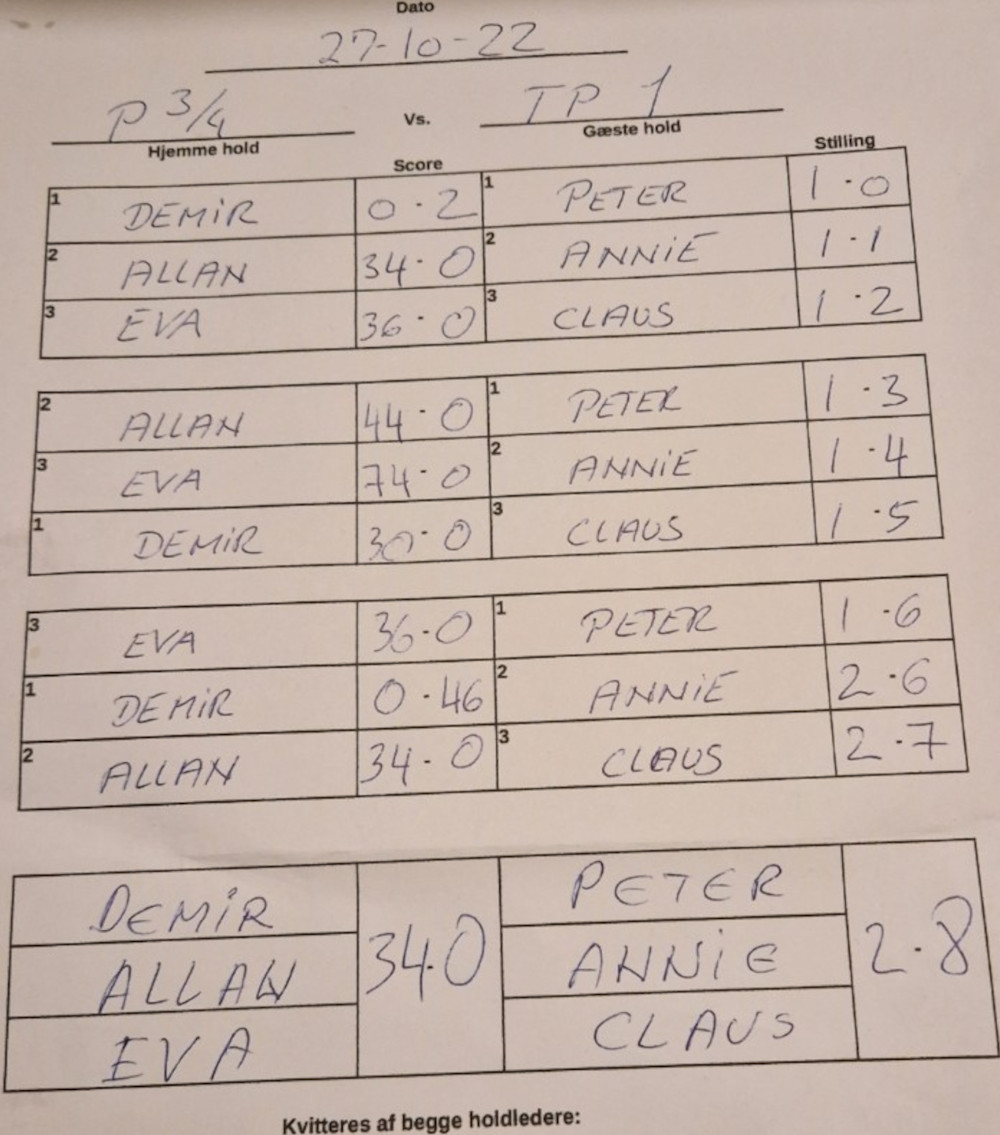 Dato
27-10-22
P 3/4 Vs. TP 1
Hjemme hold Gæste hold
Score Stilling
1 DEMIR 0·2 1 PETER 1·0
2 ALLAN 34·0 2 ANNIE 1·1
3 EVA 36·0 3 CLAUS 1·2
2 ALLAN 44·0 1 PETER 1·3
3 EVA 74·0 2 ANNIE 1·4
1 DEMIR 30·0 3 CLAUS 1·5
3 EVA 36·0 1 PETER 1·6
1 DEMIR 0·46 2 ANNIE 2·6
2 ALLAN 34·0 3 CLAUS 2·7
DEMIR PETER
ALLAN 34·0 ANNIE 2·8
EVA CLAUS
Kvitteres af begge holdledere: